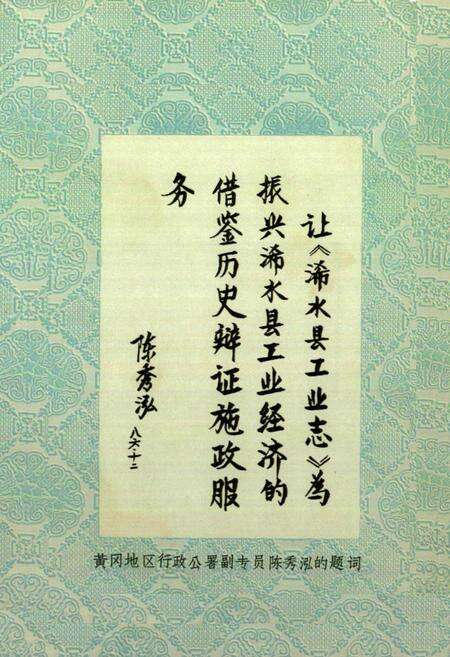 让《浠水县工业志》为
振兴浠水县工业经济的
借鉴历史辩证施政服
务
陈秀泓
八六·十二
黄冈地区行政公署副专员陈秀泓的题词